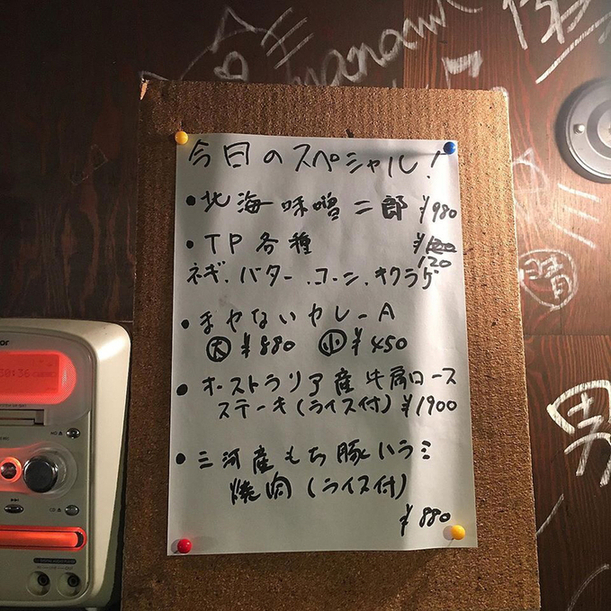 今日のスペシャル!
• 北海味噌二郎 ¥980
• TP各種 ¥100
120
ネギ.バター.コーン.キクラゲ
• まかないカレーA
大 ¥880 小 ¥450
• オーストラリア産牛肩ロース
ステーキ(ライス付) ¥1900
• 三河産もち豚ハラミ
焼肉(ライス付)
¥880
manami
晴
男